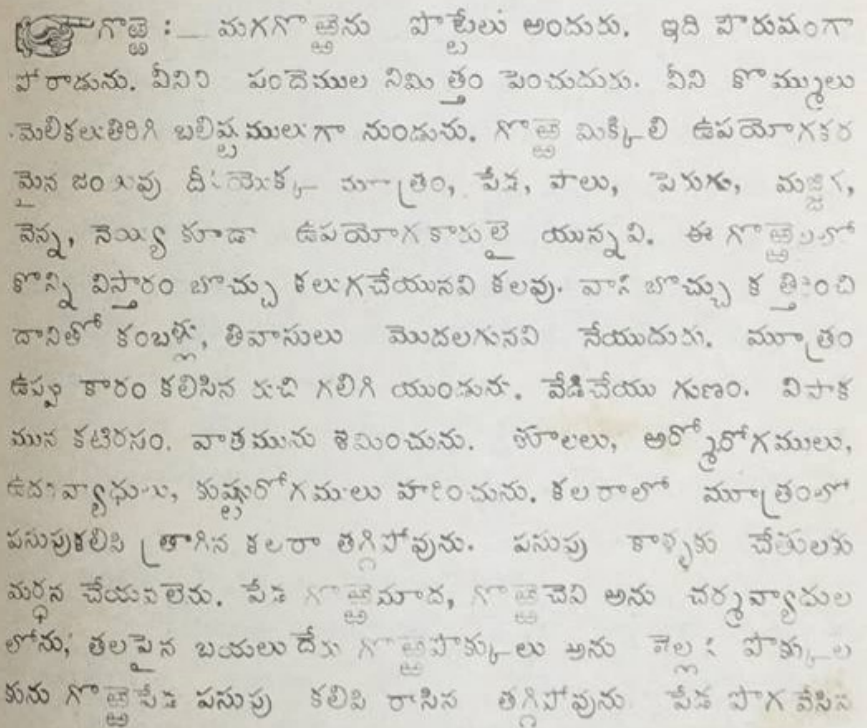 గొఱ్ఱె :_ మగగొఱ్ఱెను పొట్టేలు అందురు. ఇది పౌరుషంగా
పోరాడును. వీనిని పందెముల నిమిత్తం పెంచుదురు. వీని కొమ్ములు
మెలికలుతిరిగి బలిష్టములుగా నుండును. గొఱ్ఱె మిక్కిలి ఉపయోగకర
మైన జంతువు దీనియొక్క మూత్రం, పేడ, పాలు, పెరుగు, మజ్జిగ,
వెన్న, నెయ్యి కూడా ఉపయోగకారులై యున్నవి. ఈ గొఱ్ఱెలలో
కొన్ని విస్తారం బొచ్చు కలుగచేయునవి కలవు. వాని బొచ్చు కత్తిరించి
దానితో కంబళ్లు, తివాసులు మొదలగునవి నేయుదురు. మూత్రం
ఉప్పు కారం కలిసిన రుచి గలిగి యుండును. వేడిచేయు గుణం. విపాక
మున కటిరసం. వాతమును శమించును. శూలలు, అర్శోరోగములు,
ఉదరవ్యాధులు, కుష్టురోగములు హరించును. కలరాలో మూత్రంలో
పసుపుకలిపి త్రాగిన కలరా తగ్గిపోవును. పసుపు కాళ్ళకు చేతులకు
మర్ధన చేయవలెను. పేడ గొఱ్ఱెమాద, గొఱ్ఱెచెవి అను చర్మవ్యాదుల
లోను, తలపైన బయలుదేరు గొఱ్ఱెపొక్కులు అను పొక్కుల
కును గొఱ్ఱెపేడ పసుపు కలిపి రాసిన తగ్గిపోవును పేడ పొగ వేసిన